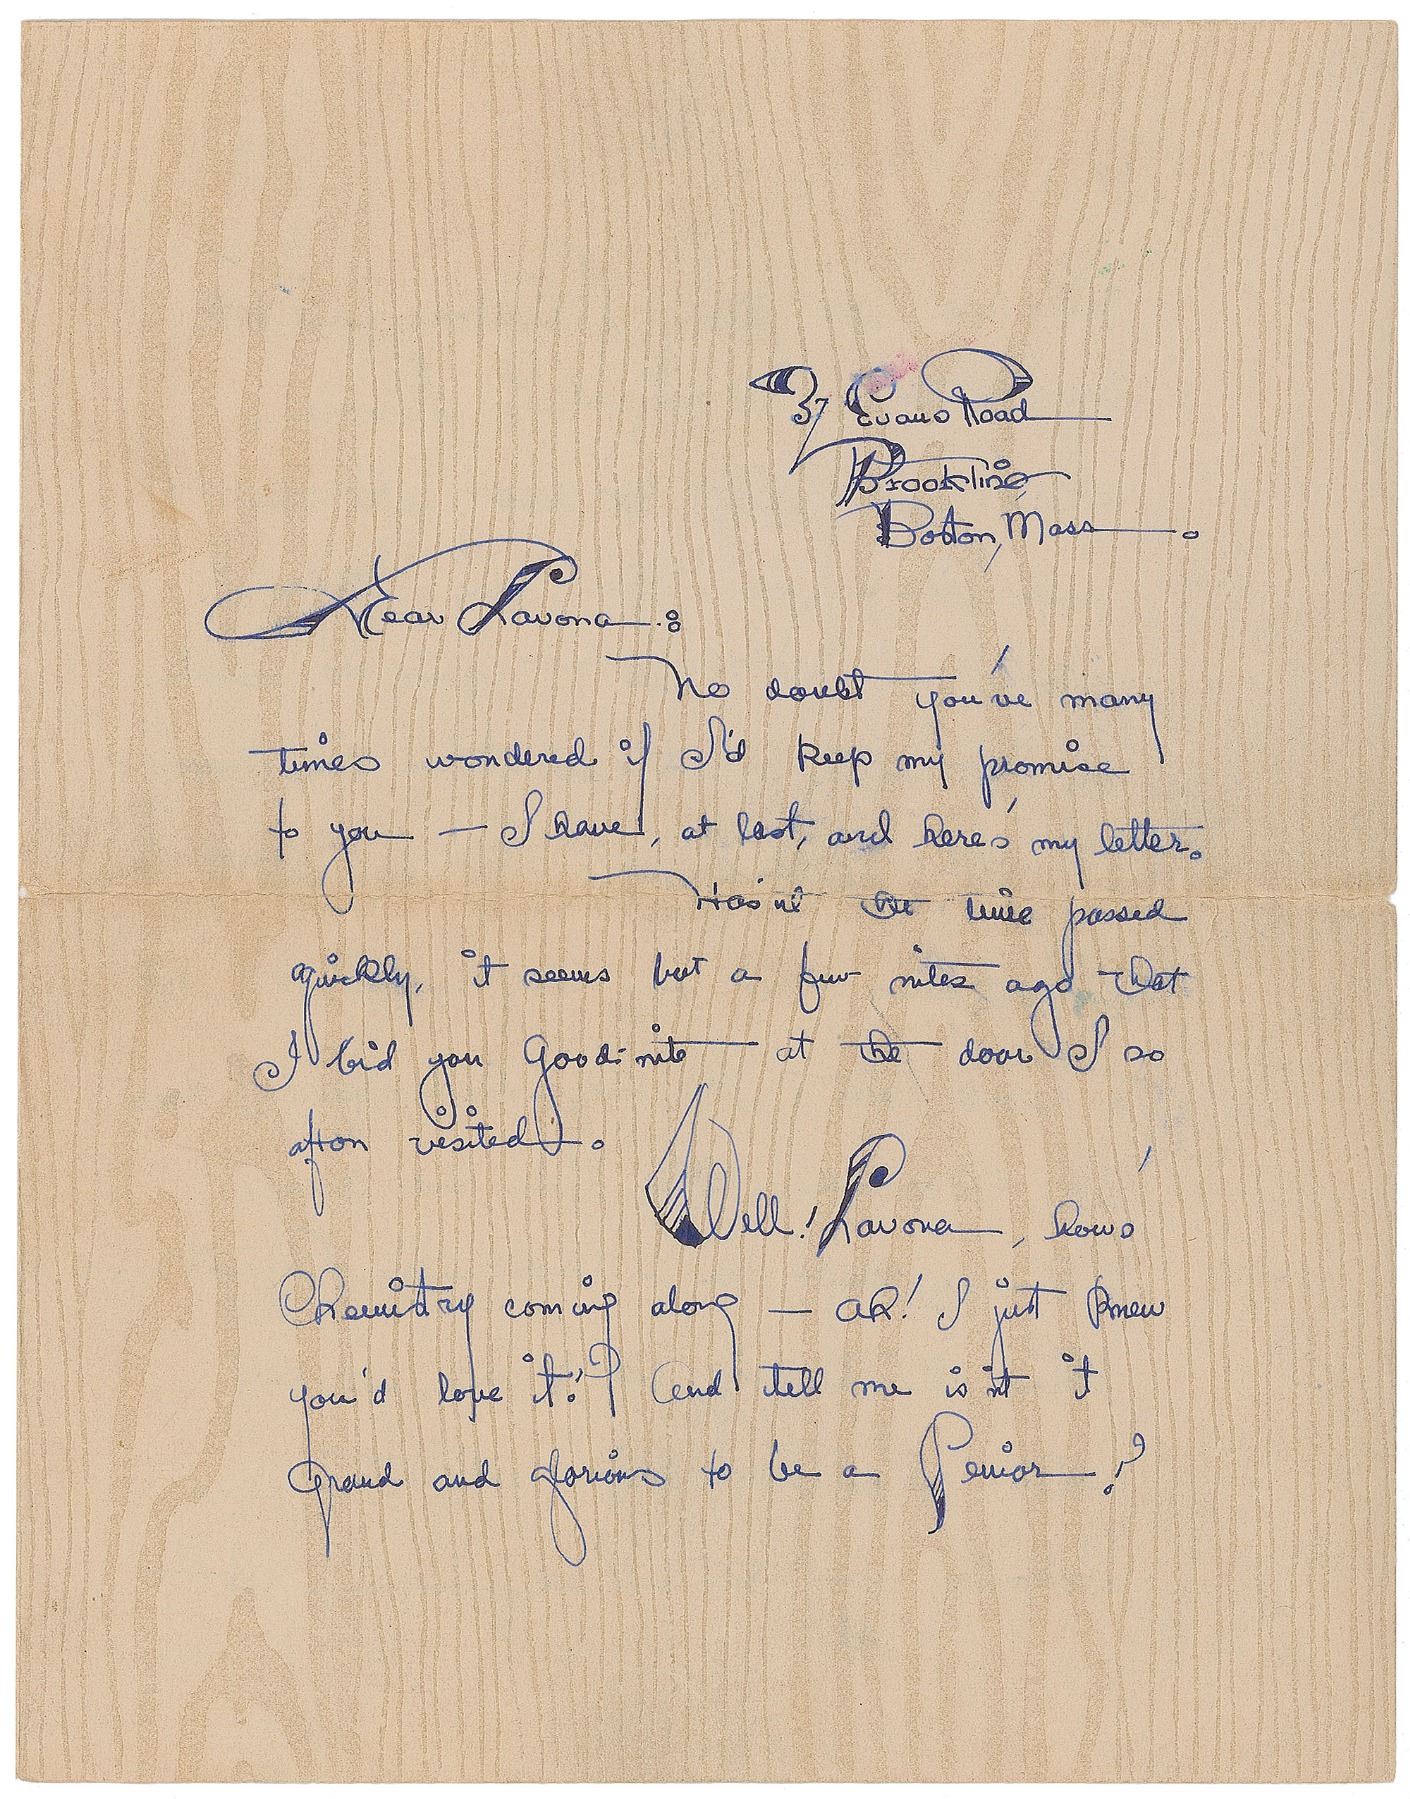 37 Evans Road
Brookline
Boston, Mass.
Dear Lavona:
No doubt you've many
times wondered if I'd keep my promise
to you — I have, at last, and here's my letter.
Has'nt the time passed
quickly, it seems but a few nites ago that
I bid you Good-nite at the door I so
afton visited.
Well! Lavona, how's
Chemistry coming along — ah! I just knew
you'd love it!? And tell me is'nt it
grand and glorious to be a Senior!?